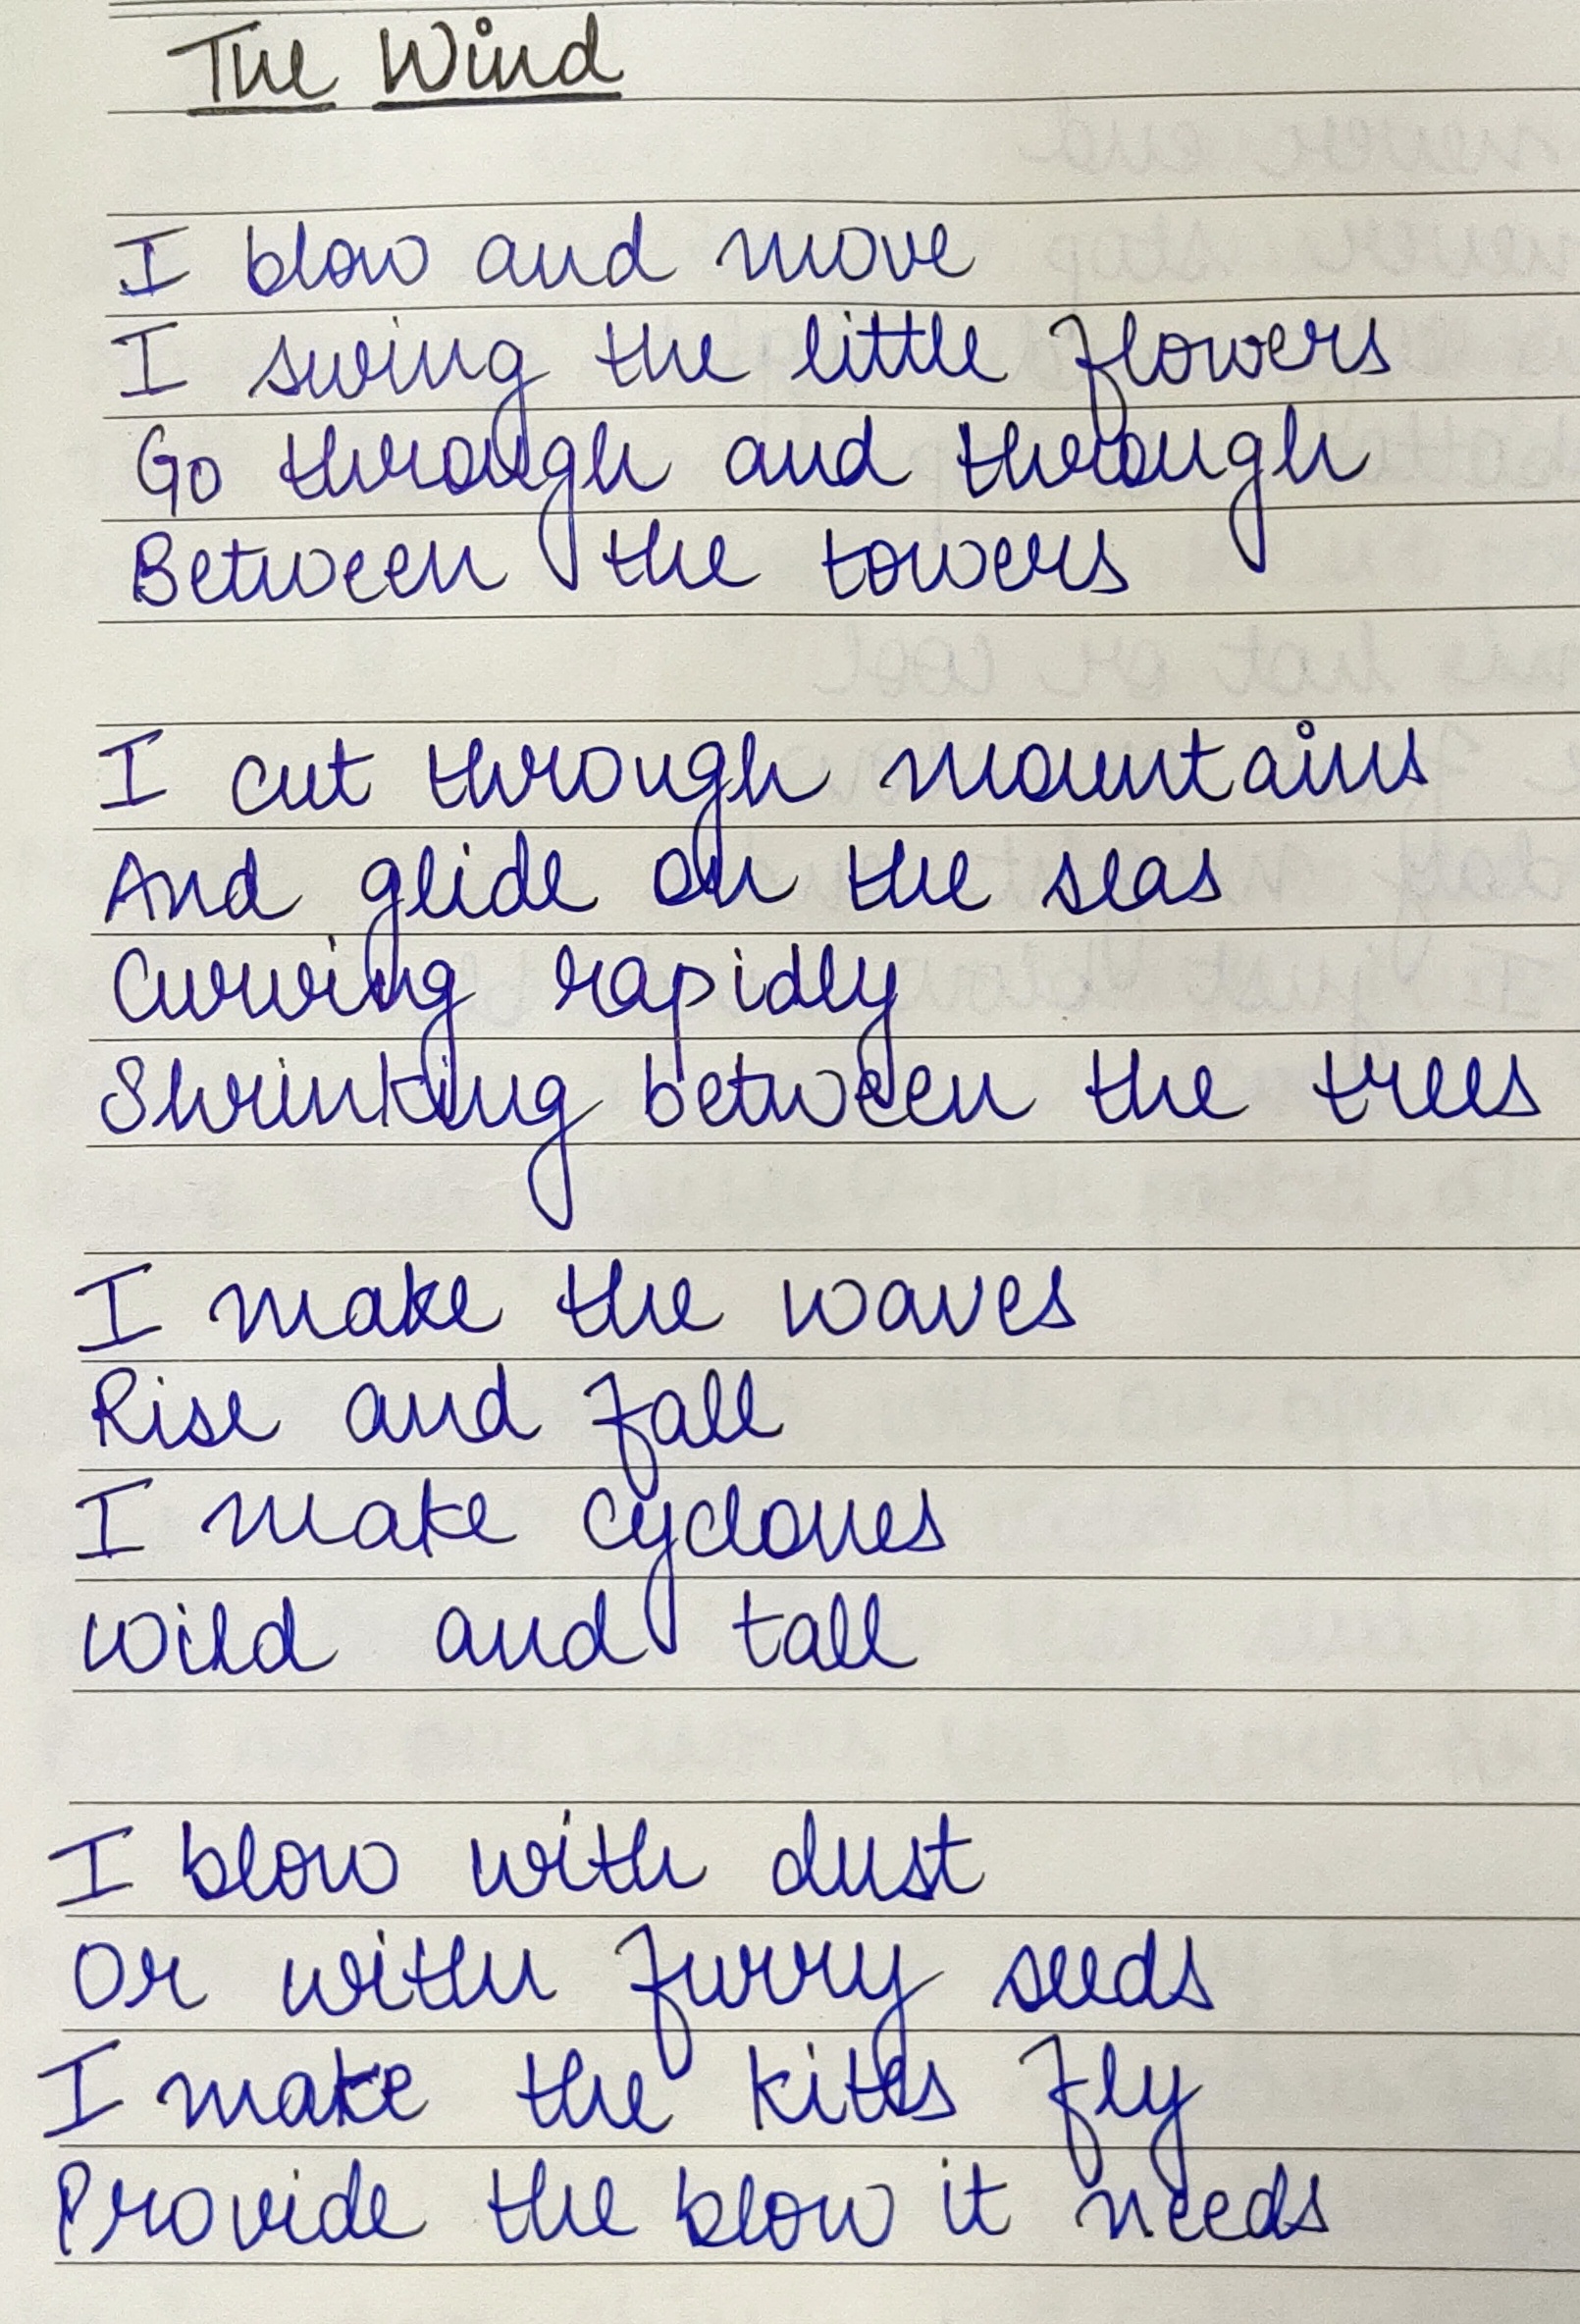 The Wind
I blow and move
I swing the little flowers
Go through and through
Between the towers
I cut through mountains
And glide on the seas
Curving rapidly
Shrinking between the trees
I make the waves
Rise and fall
I make cyclones
Wild and tall
I blow with dust
Or with furry seeds
I make the kites fly
Provide the blow it needs